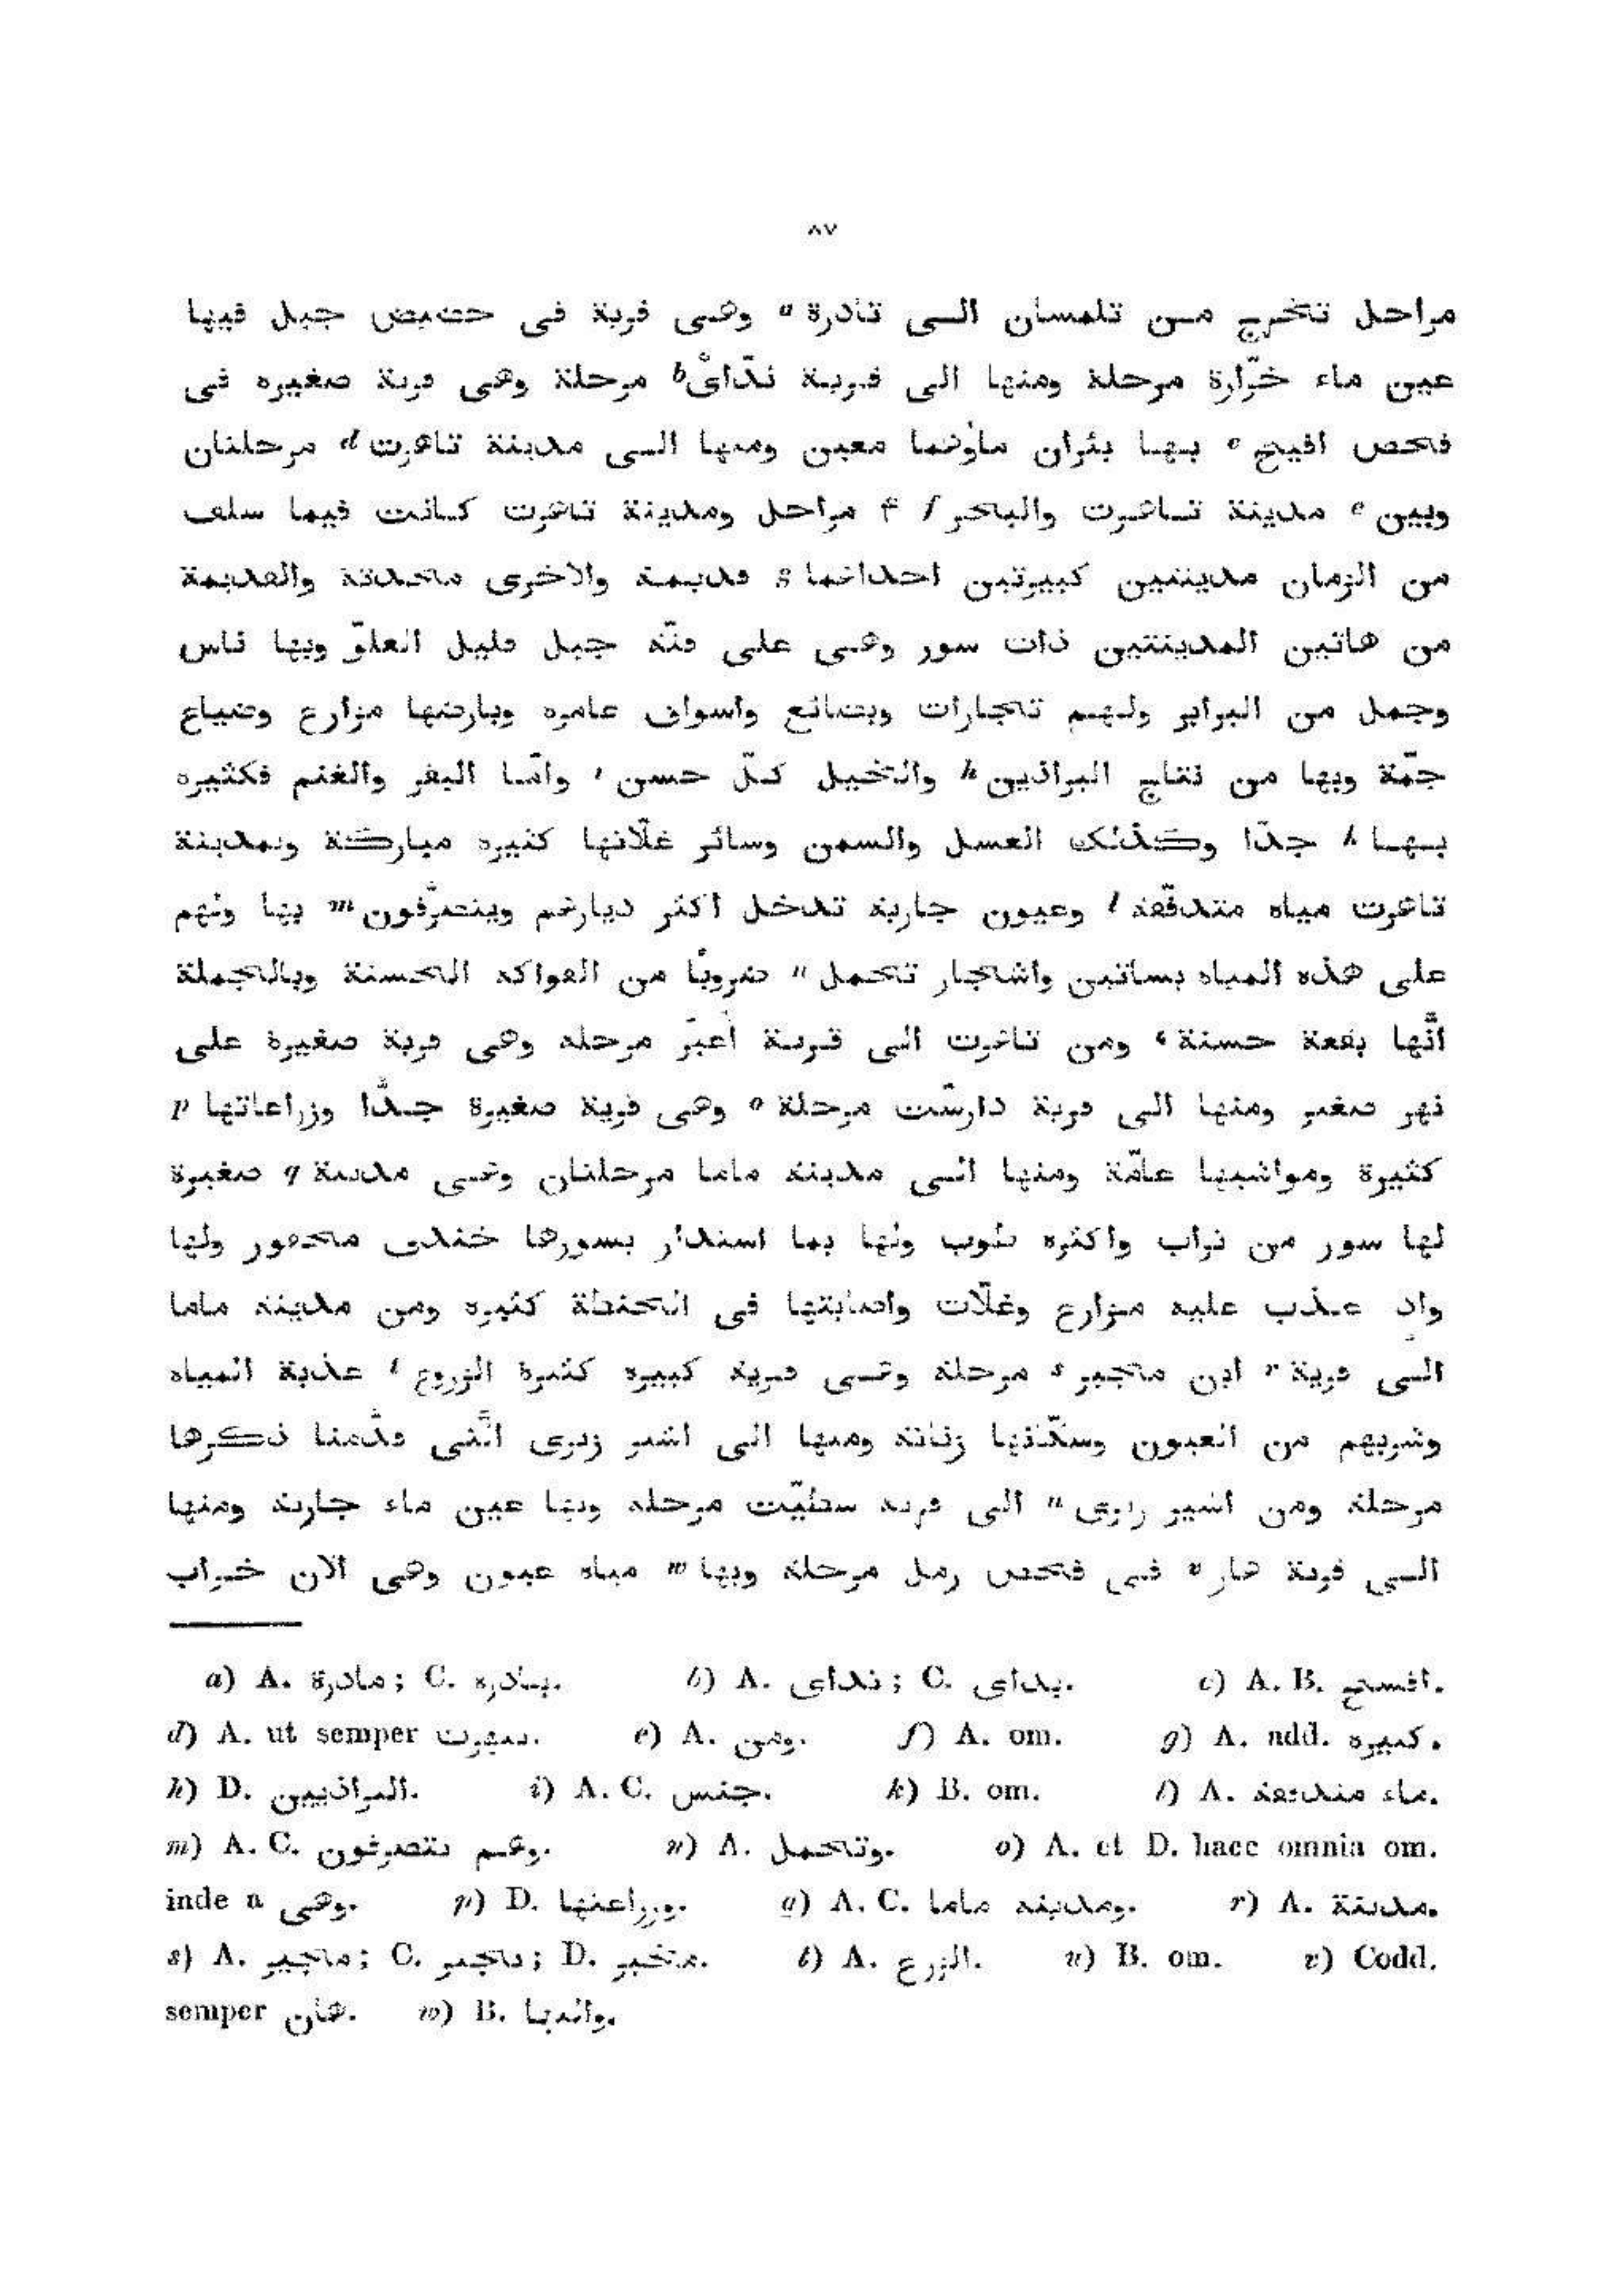 ٨٧
مراحل تخرج من تلمسان الى تادرة a وهى قرية فى حضيض جبل فيها
عين ماء خرّارة مرحلة ومنها الى قرية ندّاىْ b مرحلة وهى قرية صغيرة فى
فحص افيح c بها بئران ماؤهما معين ومنها الى مدينة تاهرت d مرحلتان
وبين e مدينة تاهرت والبحر f ۴ مراحل ومدينة تاهرت كانت فيما سلف
من الزمان مدينتين كبيرتين احداهما g قديمة والاخرى محدثة والقديمة
من هاتين المدينتين ذات سور وهى على قنّة جبل قليل العلوّ وبها ناس
وجمل من البرابر ولهم تجارات وبضائع واسواق عامرة وبارضها مزارع وضياع
جمّة وبها من نتاج البراذين h والخيل كلّ حسن i وامّا البقر والغنم فكثيرة
بها k جدّا وكذلك العسل والسمن وسائر غلّاتها كثيرة مباركة وبمدينة
تاهرت مياه متدفّقة l وعيون جارية تدخل اكثر ديارهم ويتصرّفون m بها ولهم
على هذه المياه بساتين واشجار تحمل n ضروبًا من الفواكه الحسنة وبالجملة
انّها بقعة حسنة، ومن تاهرت الى قرية أعبَر مرحلة وهى قرية صغيرة على
نهر صغير ومنها الى قرية دارسْت مرحلة o وهى قرية صغيرة جدًّا وزراعاتها p
كثيرة ومواشيها عامّة ومنها الى مدينة ماما مرحلتان وهى مدينة q صغيرة
لها سور من تراب واكثره طوب ولها بما استدار بسورها خندق محفور ولها
واد عذب عليه مزارع وغلّات واصابتها فى الحنطة كثيرة ومن مدينة ماما
الى قرية r ابن مجبر s مرحلة وهى قرية كبيرة كثيرة الزروع t عذبة المياه
وشربهم من العيون وسكّانها زناتة ومنها الى اشير زيرى الّتى قدّمنا ذكرها
مرحلة ومن اشير زيرى u الى قرية سطيّت مرحلة وبها عين ماء جارية ومنها
الى قرية هاز v فى فحص رمل مرحلة وبها w مياه عيون وهى الان خراب
a) A. مادرة; C. بادره. b) A. نداى; C. يداى. c) A. B. افسح.
d) A. ut semper تيهرت. e) A. ومن. f) A. om. g) A. add. كبيرة.
h) D. البراذيين. i) A. C. جنس. k) B. om. l) A. ماء مندفعة.
m) A. C. وهم يتصرفون. n) A. وتحمل. o) A. et D. haec omnia om.
inde a وهى. p) D. وزراعتها. q) A. C. ومدينة ماما. r) A. مدينة.
s) A. ماجير; C. D. متخير. t) A. الزرع. u) B. om. v) Codd.
semper هان. w) B.